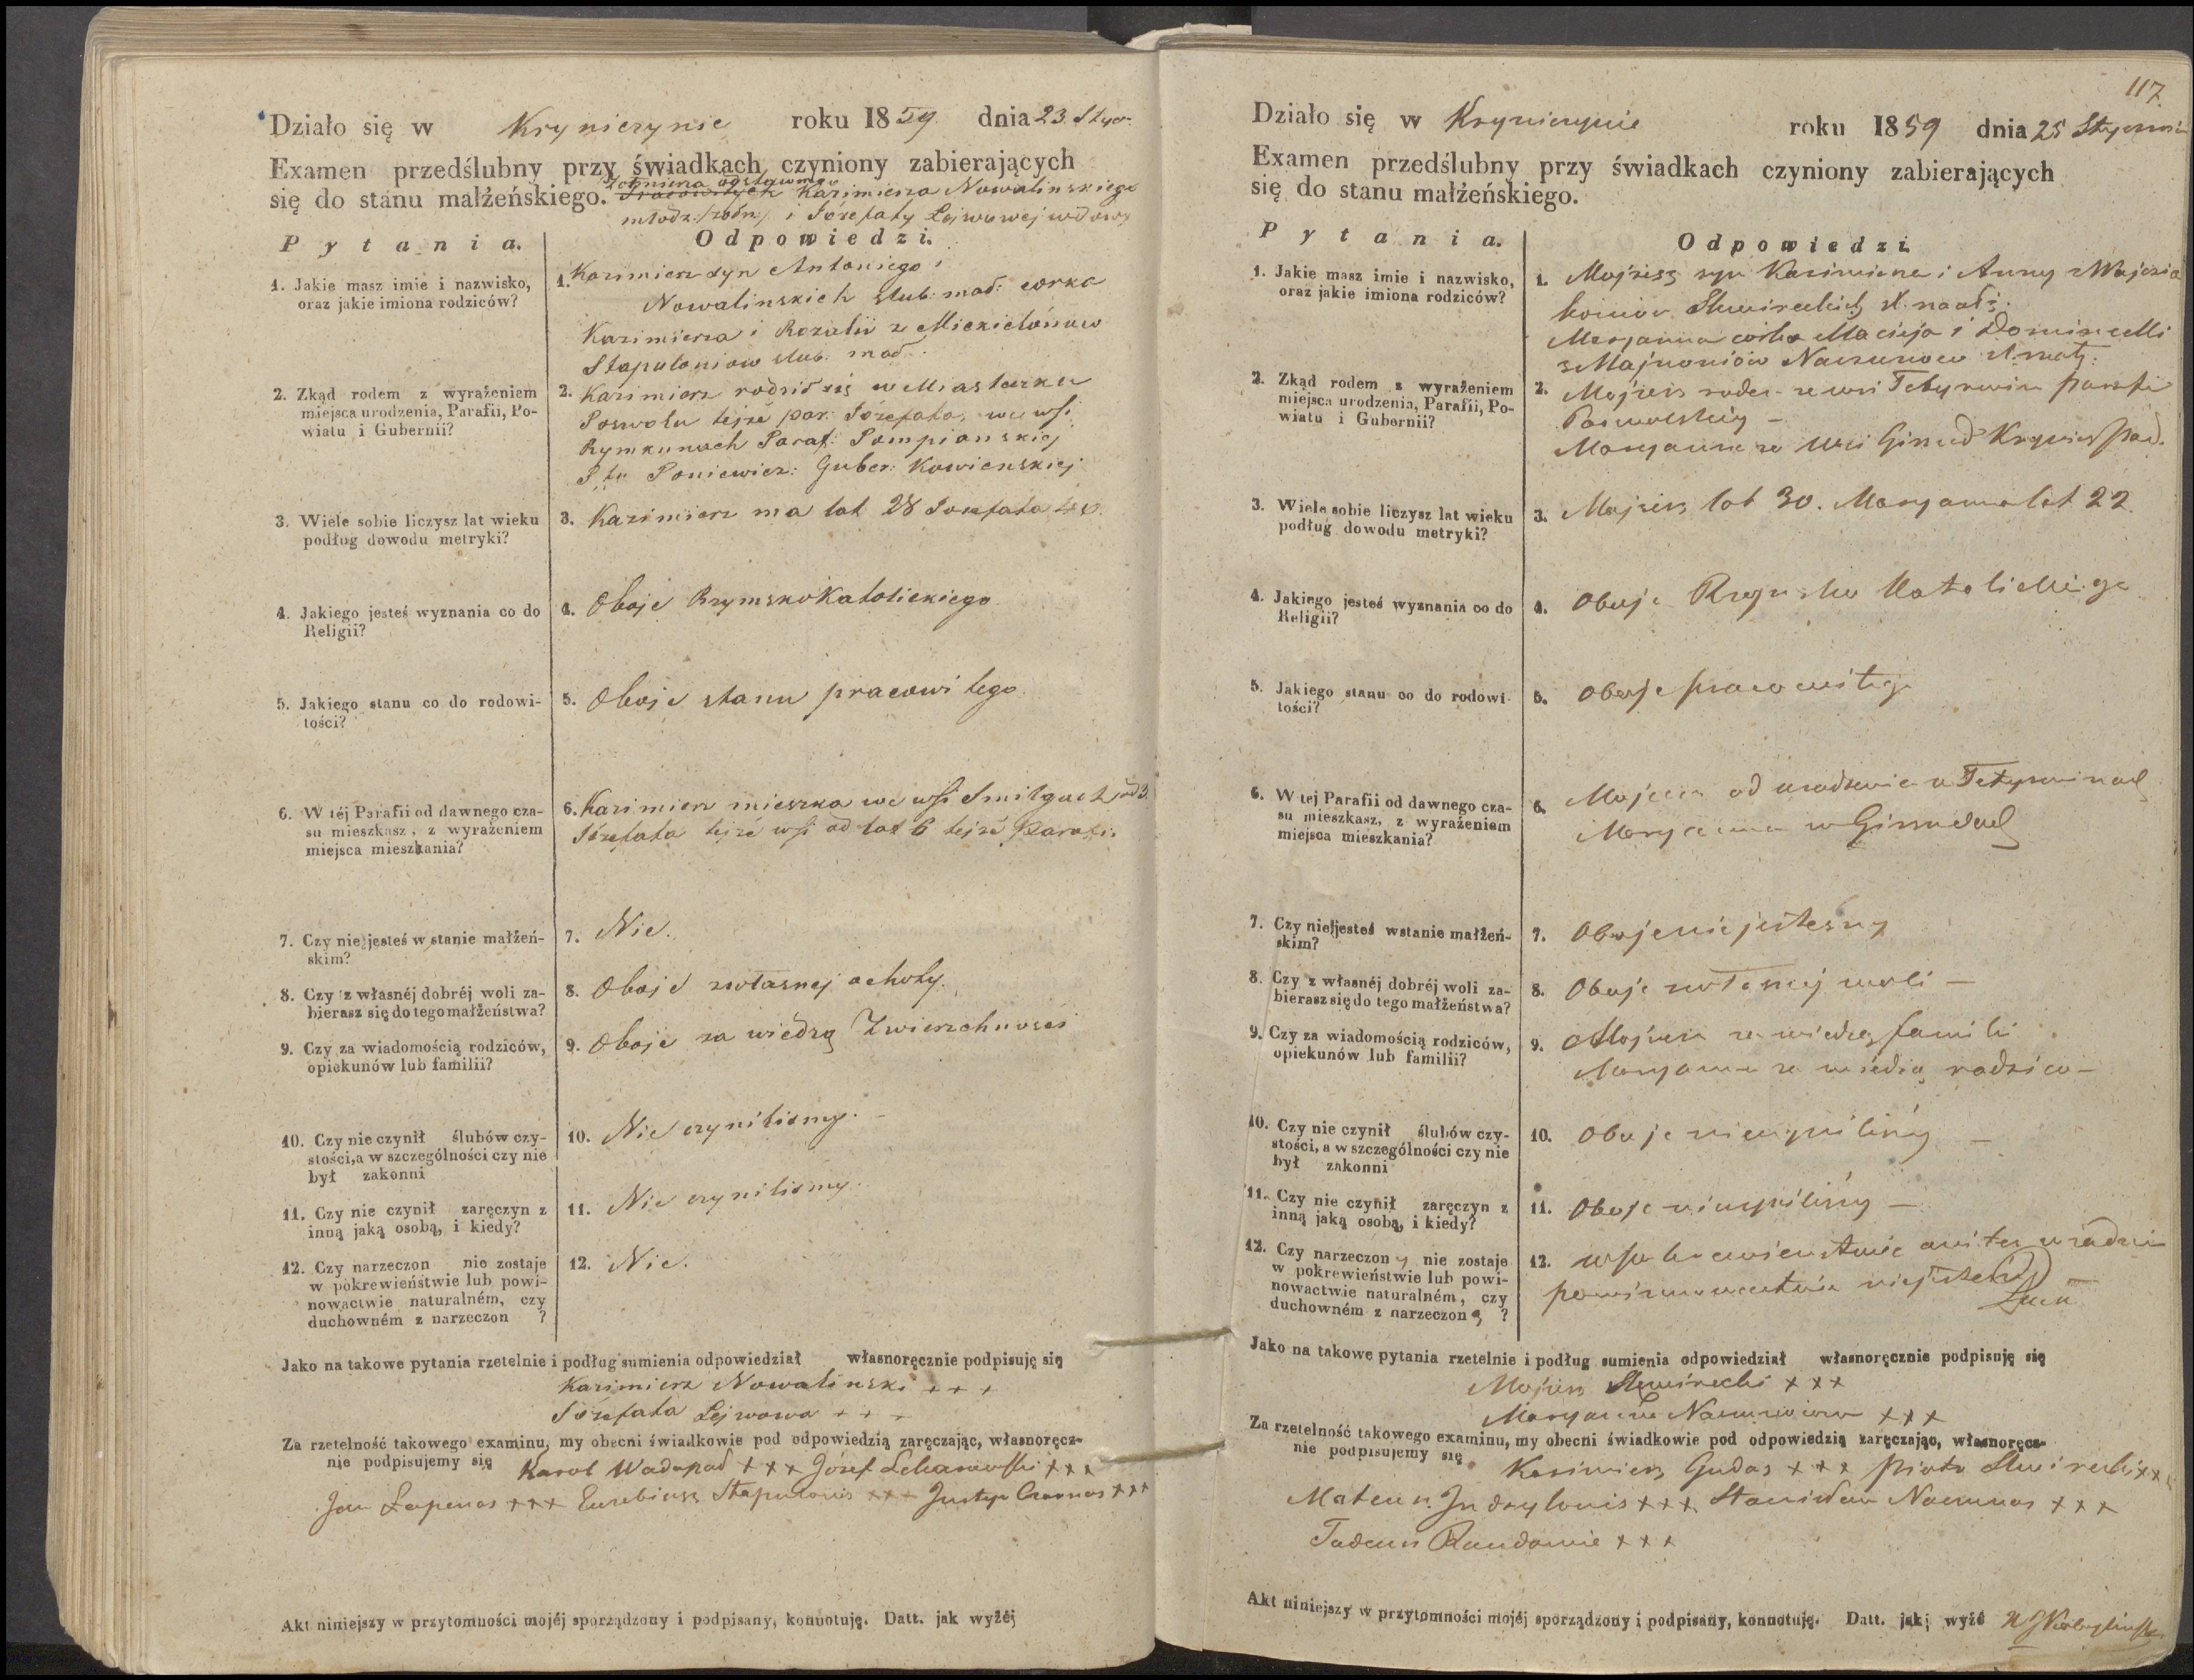 Działo się w Kryniczynie roku 1859 dnia 23 Stycz.
Examen przedślubny przy świadkach czyniony zabierających
się do stanu małżeńskiego. Pracowitych Kazimierza Nowalinskiego
młodz: i Józefaty Lejwowej wdowy
Pytania. Odpowiedzi.
1. Jakie masz imie i nazwisko,
oraz jakie imiona rodziców?
1. Kazimierz syn Antoniego i
Nowalinskich slub: mał: corka
Kazimierza i Rozalii z
Stapuloniow slub. mał.
2. Zkąd rodem z wyrażeniem
miejsca urodzenia, Parafii, Po-
wiatu i Gubernii?
2. Kazimierz rodził się w Miasteczku
Poswolu tejże par: Józefata, we wsi
Rymkunach Paraf: Pompianskiej
Ptu Poniewiez: Guber: Kowienskiej
3. Wiele sobie liczysz lat wieku
podług dowodu metryki?
3. Kazimierz ma lat 28 Józefata 40.
4. Jakiego jesteś wyznania co do
Religii?
4. Oboje RzymskoKatolickiego
5. Jakiego stanu co do rodowi-
tości?
5. Oboje stanu pracowitego
6. W téj Parafii od dawnego cza-
su mieszkasz, z wyrażeniem
miejsca mieszkania?
6. Kazimierz mieszka we wsi Smilgach od 3.
Józefata tejże wsi od lat 6 tejże Parafii.
7. Czy nie jesteś w stanie małżeń-
skim?
7. Nie.
8. Czy z własnéj dobréj woli za-
bierasz się do tego małżeństwa?
8. Oboje zwłasnej ochoty.
9. Czy za wiadomością rodziców,
opiekunów lub familii?
9. Oboje za wiedzą Zwierzchnosci
10. Czy nie czynił ślubów czy-
stości, a w szczególności czy nie
był zakonni
10. Nie czynilismy. -
11. Czy nie czynił zaręczyn z
inną jaką osobą, i kiedy?
11. Nie czynilismy.
12. Czy narzeczon nie zostaje
w pokrewieństwie lub powi-
nowactwie naturalném, czy
duchowném z narzeczon ?
12. Nie.
Jako na takowe pytania rzetelnie i podług sumienia odpowiedział własnoręcznie podpisuję się
Kazimierz Nowalinski + + +
Józefata Lejwowa + + -
Za rzetelność takowego examinu, my obecni świadkowie pod odpowiedzią zaręczając, własnoręcz-
nie podpisujemy się Karol Wadapad + + + Józef + + +
Jan Lapenas +++ Euzebiusz Stapulonis +++ Justyn Czarnas +++
Akt niniejszy w przytomności mojéj sporządzony i podpisany, konnotuję. Datt. jak wyżéj
117
Działo się w Kryniczynie roku 1859 dnia 25 Stycznia
Examen przedślubny przy świadkach czyniony zabierających
się do stanu małżeńskiego.
Pytania. Odpowiedzi
1. Jakie masz imie i nazwisko,
oraz jakie imiona rodziców?
1. Mojżesz syn Kazimierza i Anny z
Maryanna córka Macieja i
z Majnoniów
2. Zkąd rodem z wyrażeniem
miejsca urodzenia, Parafii, Po-
wiatu i Gubernii?
2. Mojżesz rodem ze wsi parafii
Poswolskiéj -
Maryanna ze wsi
3. Wiele sobie liczysz lat wieku
podług dowodu metryki?
3. Mojżesz lat 30. Maryanna lat 22.
4. Jakiego jesteś wyznania co do
Religii?
4. Oboje Rzymsko Katolickiego
5. Jakiego stanu co do rodowi-
tości?
5. Oboje pracowitego
6. W tej Parafii od dawnego cza-
su mieszkasz, z wyrażeniem
miejsca mieszkania?
6. Mojżesz od urodzenia w
Maryanna w
7. Czy nie jesteś wstanie małżeń-
skim?
7. Oboje nie jesteśmy
8. Czy z własnéj dobréj woli za-
bierasz się do tego małżeństwa?
8. Oboje zwłasnej woli -
9. Czy za wiadomością rodziców,
opiekunów lub familii?
9. Mojżesz za wiedzą familii
Maryanna za wiedzą rodziców -
10. Czy nie czynił ślubów czy-
stości, a w szczególności czy nie
był zakonni
10. Oboje nieczyniliśmy -
11. Czy nie czynił zaręczyn z
inną jaką osobą, i kiedy?
11. Oboje nieczyniliśmy -
12. Czy narzeczony nie zostaje
w pokrewieństwie lub powi-
nowactwie naturalném, czy
duchowném z narzeczoną ?
12. w pokrewienstwie ani też w żadnem
powinowactwie niejesteśmy
Jako na takowe pytania rzetelnie i podług sumienia odpowiedział własnoręcznie podpisuję się
Mojżesz + + +
Maryanna + + +
Za rzetelność takowego examinu, my obecni świadkowie pod odpowiedzią zaręczając, własnoręcz-
nie podpisujemy się Kazimierz Gudas + + + Piotr + + +
Mateusz + + + Stanisław Naumnas + + +
Tadeusz + + +
Akt niniejszy w przytomności mojéj sporządzony i podpisany, konnotuję. Datt. jak wyżé